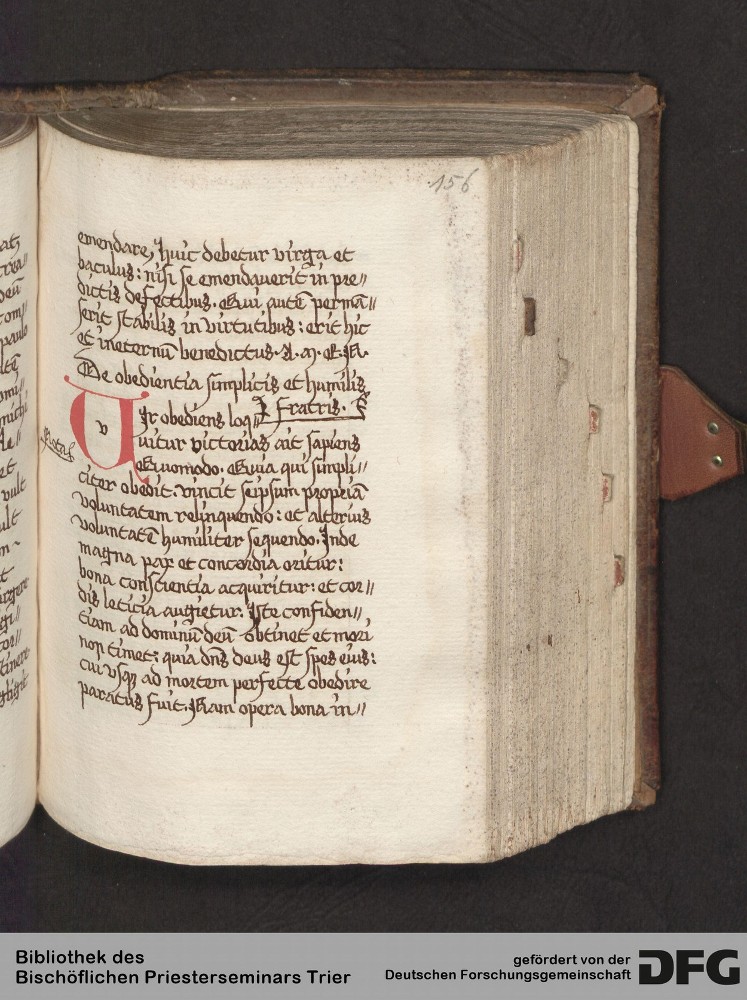 156
emendare, huic debetur virga et
baculus: nisi se emendaverit in pre//
dictis defectibus. Qui autē permā//
serit stabilis in virtutibus: erit hic
et ineternū benedictus. A. M. E. N.
De obedientia simplicis et humilis
fratris.
Vir obediens loq//
uitur victorias ait sapiens
Quomodo. Quia qui simpli//
citer obedit: vincit seipsum propriā
voluntatem relinquendo: et alterius
voluntatē humiliter sequendo. Inde
magna pax et concordia oritur:
bona conscientia acquiritur: et cor//
dis leticia augetur. Iste confiden//
tiam ad dominū deū obtinet et mori
non timet: quia dns deus est spes eius:
cui usq ad mortem perfecte obedire
paratus fuit. Nam opera bona in//
Bibliothek des
Bischöflichen Priesterseminars Trier
gefördert von der
Deutschen Forschungsgemeinschaft
DFG